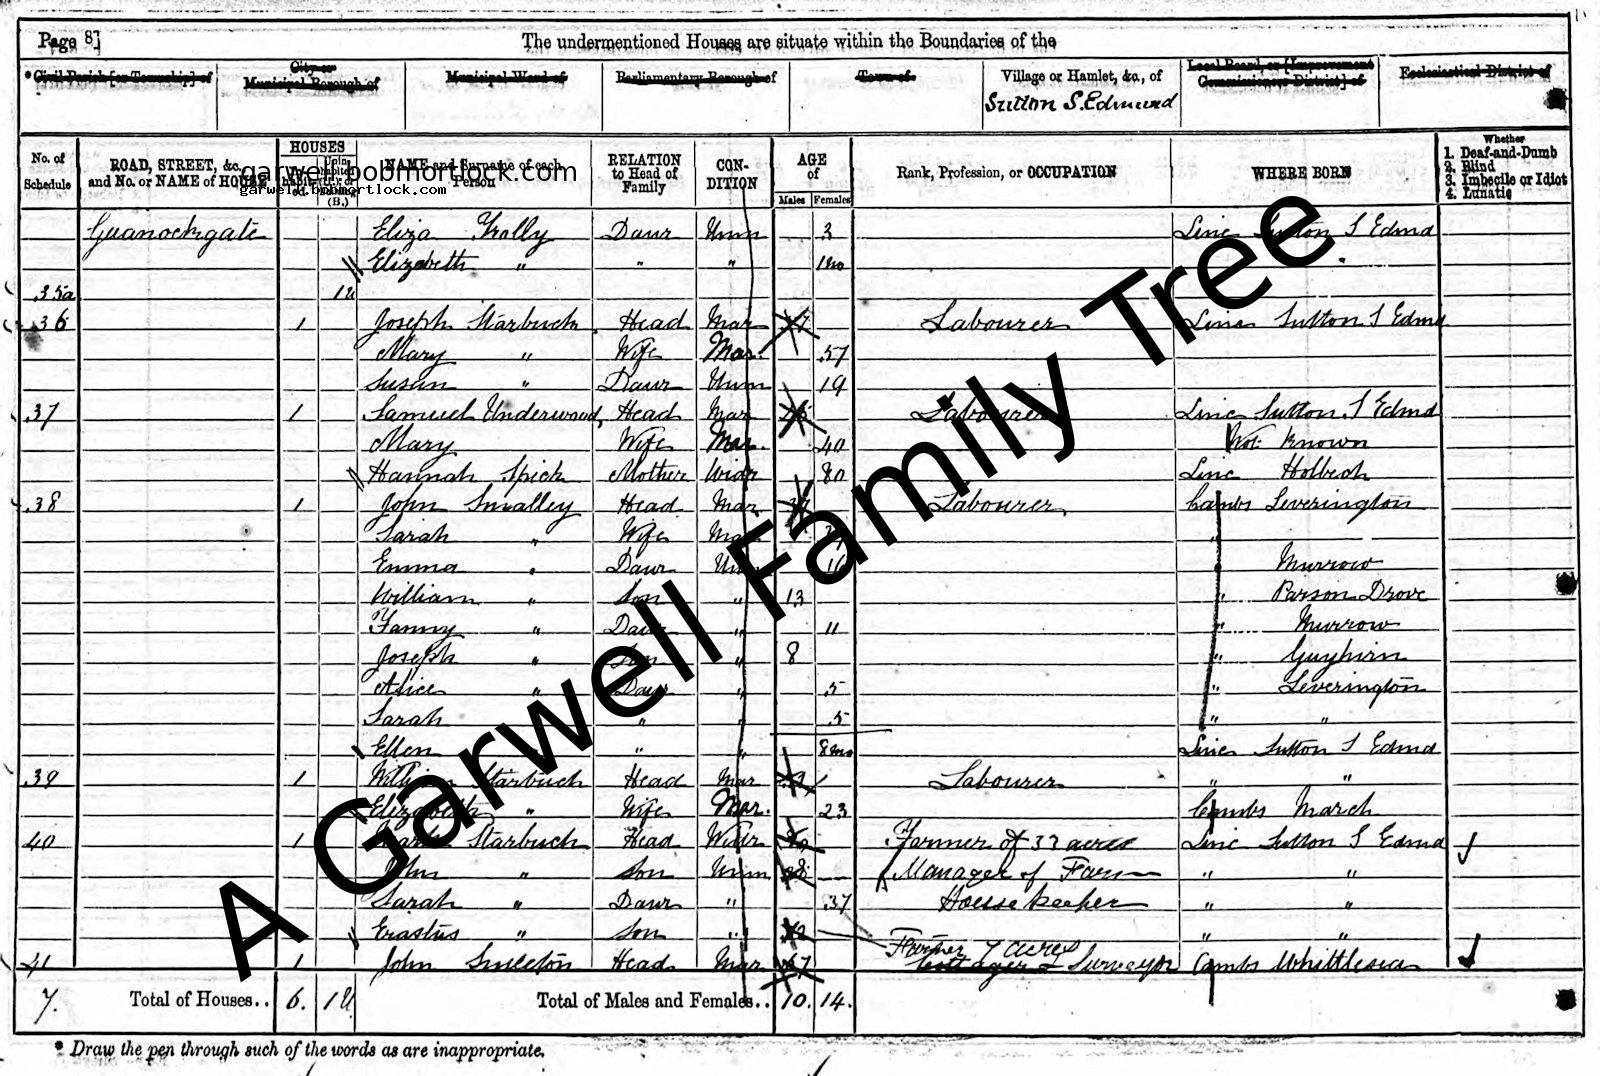 Page 8]
The undermentioned Houses are situate within the Boundaries of the
*Civil Parish [or Township] of
City or Municipal Borough of
Municipal Ward of
Parliamentary Borough of
Town of
Village or Hamlet, &c., of
Sutton S. Edmund
Local Board, or [Improvement Commissioners District] of
Ecclesiastical District of
No. of Schedule
ROAD, STREET, &c., and No. or NAME of HOUSE
HOUSES
(B.)
NAME and Surname of each Person
RELATION to Head of Family
CONDITION
AGE of
Males Females
Rank, Profession, or OCCUPATION
WHERE BORN
Whether
1. Deaf-and-Dumb
2. Blind
3. Imbecile or Idiot
4. Lunatic
garwell.bobmortlock.com
garwell.bobmortlock.com
Eliza Daur Unm 3 Linc Sutton S Edmd
Elizabeth " " " 1mo
35a 1U
36 1 Joseph Starbuck Head Mar Labourer Linc Sutton S Edmd
Mary " Wife Mar. 57
Susan " Daur Unm 19
37 1 Samuel Underwood Head Mar Labourer Linc Sutton S Edmd
Mary Wife Mar. 40 Not Known
Hannah Spick Mother Widr 80 Linc Holbeach
38 1 John Smalley Head Mar Labourer Cambs Leverington
Sarah " Wife Mar "
Emma " Daur Unm 16 " Murrow
William " Son " 13 " Parson Drove
Fanny " Daur " 11 " Murrow
Joseph " Son " 8 " Guyhirn
Alice " Daur " 5 " Leverington
Sarah " " 5 " "
Ellen " " 8mo Linc Sutton S Edmd
39 1 William Starbuck Head Mar Labourer " "
Elizabeth " Wife Mar. 23 Cambs March
40 1 Starbuck Head Widr Farmer of 33 acres Linc Sutton S Edmd
John " Son Unm 38 Manager of Farm " "
Sarah " Daur " 37 House keeper " "
Erastus " Son " " "
41 1 John Head Mar 47 Farmer 7 acres & Surveyor Cambs Whittlesea
7. Total of Houses.. 6. 1U Total of Males and Females.. 10. 14.
* Draw the pen through such of the words as are inappropriate.
A Garwell Family Tree.